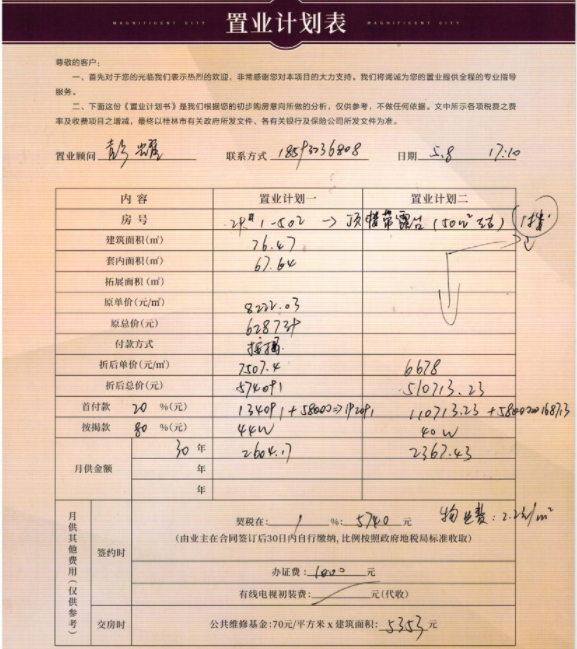 MAGNIFICENT CITY 置业计划表 MAGNIFICENT CITY
尊敬的客户：
一、首先对于您的光临我们表示热烈的欢迎，非常感谢您对本项目的大力支持。我们将竭诚为您的置业提供全程的专业指导
服务。
二、下面这份《置业计划书》是我们根据您的初步购房意向所做的分析，仅供参考，不做任何依据。文中所示各项税费之费
率及收费项目之增减，最终以桂林市有关政府所发文件、各有关银行及保险公司所发文件为准。
置业顾问 彭 联系方式 日期 5.8 17:10
内容 置业计划一 置业计划二
房号 1-502 → 顶楼带露台 (50m² 左右)
建筑面积(㎡) 76.47
套内面积(㎡) 67.64
拓展面积(㎡)
原单价(元/㎡) 8222.03
原总价(元)
付款方式 按揭
折后单价(元/㎡) 7507.4 6678
折后总价(元) 574091 510713.23
首付款 20 %(元) 134091+58000=>192091 110713.23+58000=>168713
按揭款 80 %(元) 44W 40W
月供金额 30 年 2604.17 2367.43
年
年
月供其他费用(仅供参考)
签约时
契税在: 1 %: 5740 元 物业费: /m²
(由业主在合同签订后30日内自行缴纳,比例按照政府地税局标准收取)
办证费: 元
有线电视初装费: 元(代收)
交房时 公共维修基金:70元/平方米 x 建筑面积: 5353 元